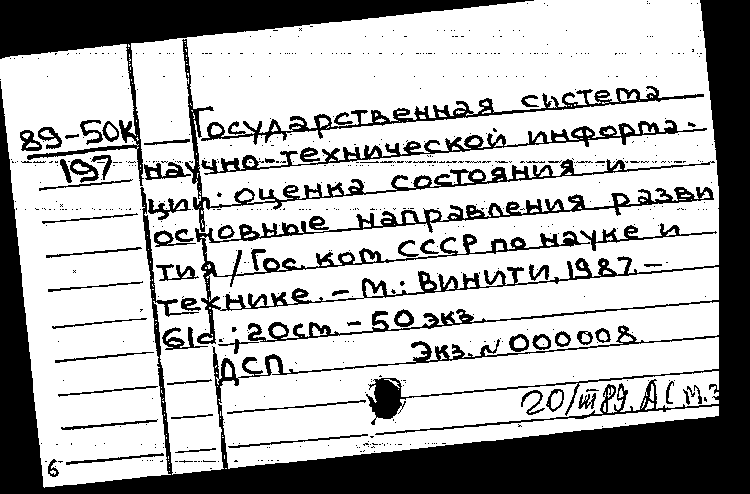 89-50К
197
Государственная система
научно-технической информа-
ции: оценка состояния и
основные направления разви
тия / Гос. ком. СССР по науке и
технике. – М.: ВИНИТИ, 1987. –
61с.; 20см. – 50 экз.
ДСП. Экз. N 000008.
20/III 89. А.С. М.З
6